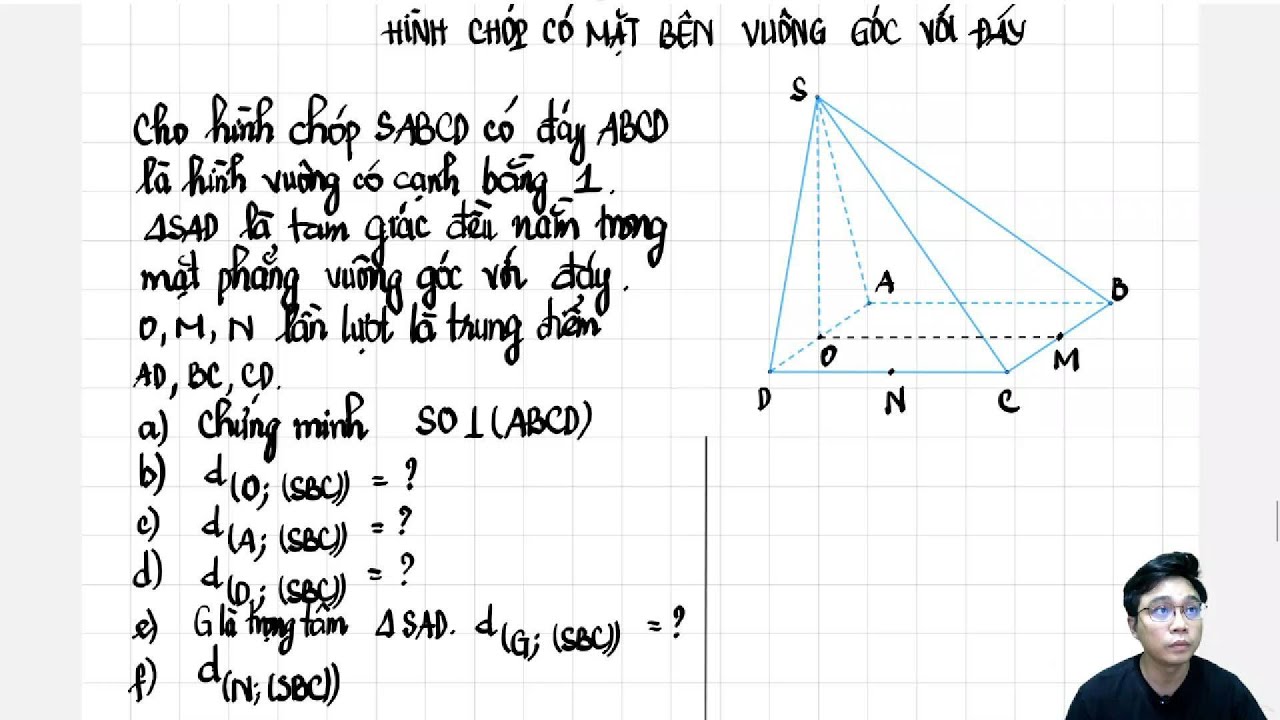 HÌNH CHÓP CÓ MẶT BÊN VUÔNG GÓC VỚI ĐÁY
Cho hình chóp SABCD có đáy ABCD
là hình vuông có cạnh bằng 1.
ΔSAD là tam giác đều nằm trong
mặt phẳng vuông góc với đáy.
O, M, N lần lượt là trung điểm
AD, BC, CD.
a) Chứng minh SO ⊥ (ABCD)
b) d(O; (SBC)) = ?
c) d(A; (SBC)) = ?
d) d(D; (SBC)) = ?
e) G là trọng tâm ΔSAD. d(G; (SBC)) = ?
f) d(N; (SBC))
S
A
B
O
M
D
N
C